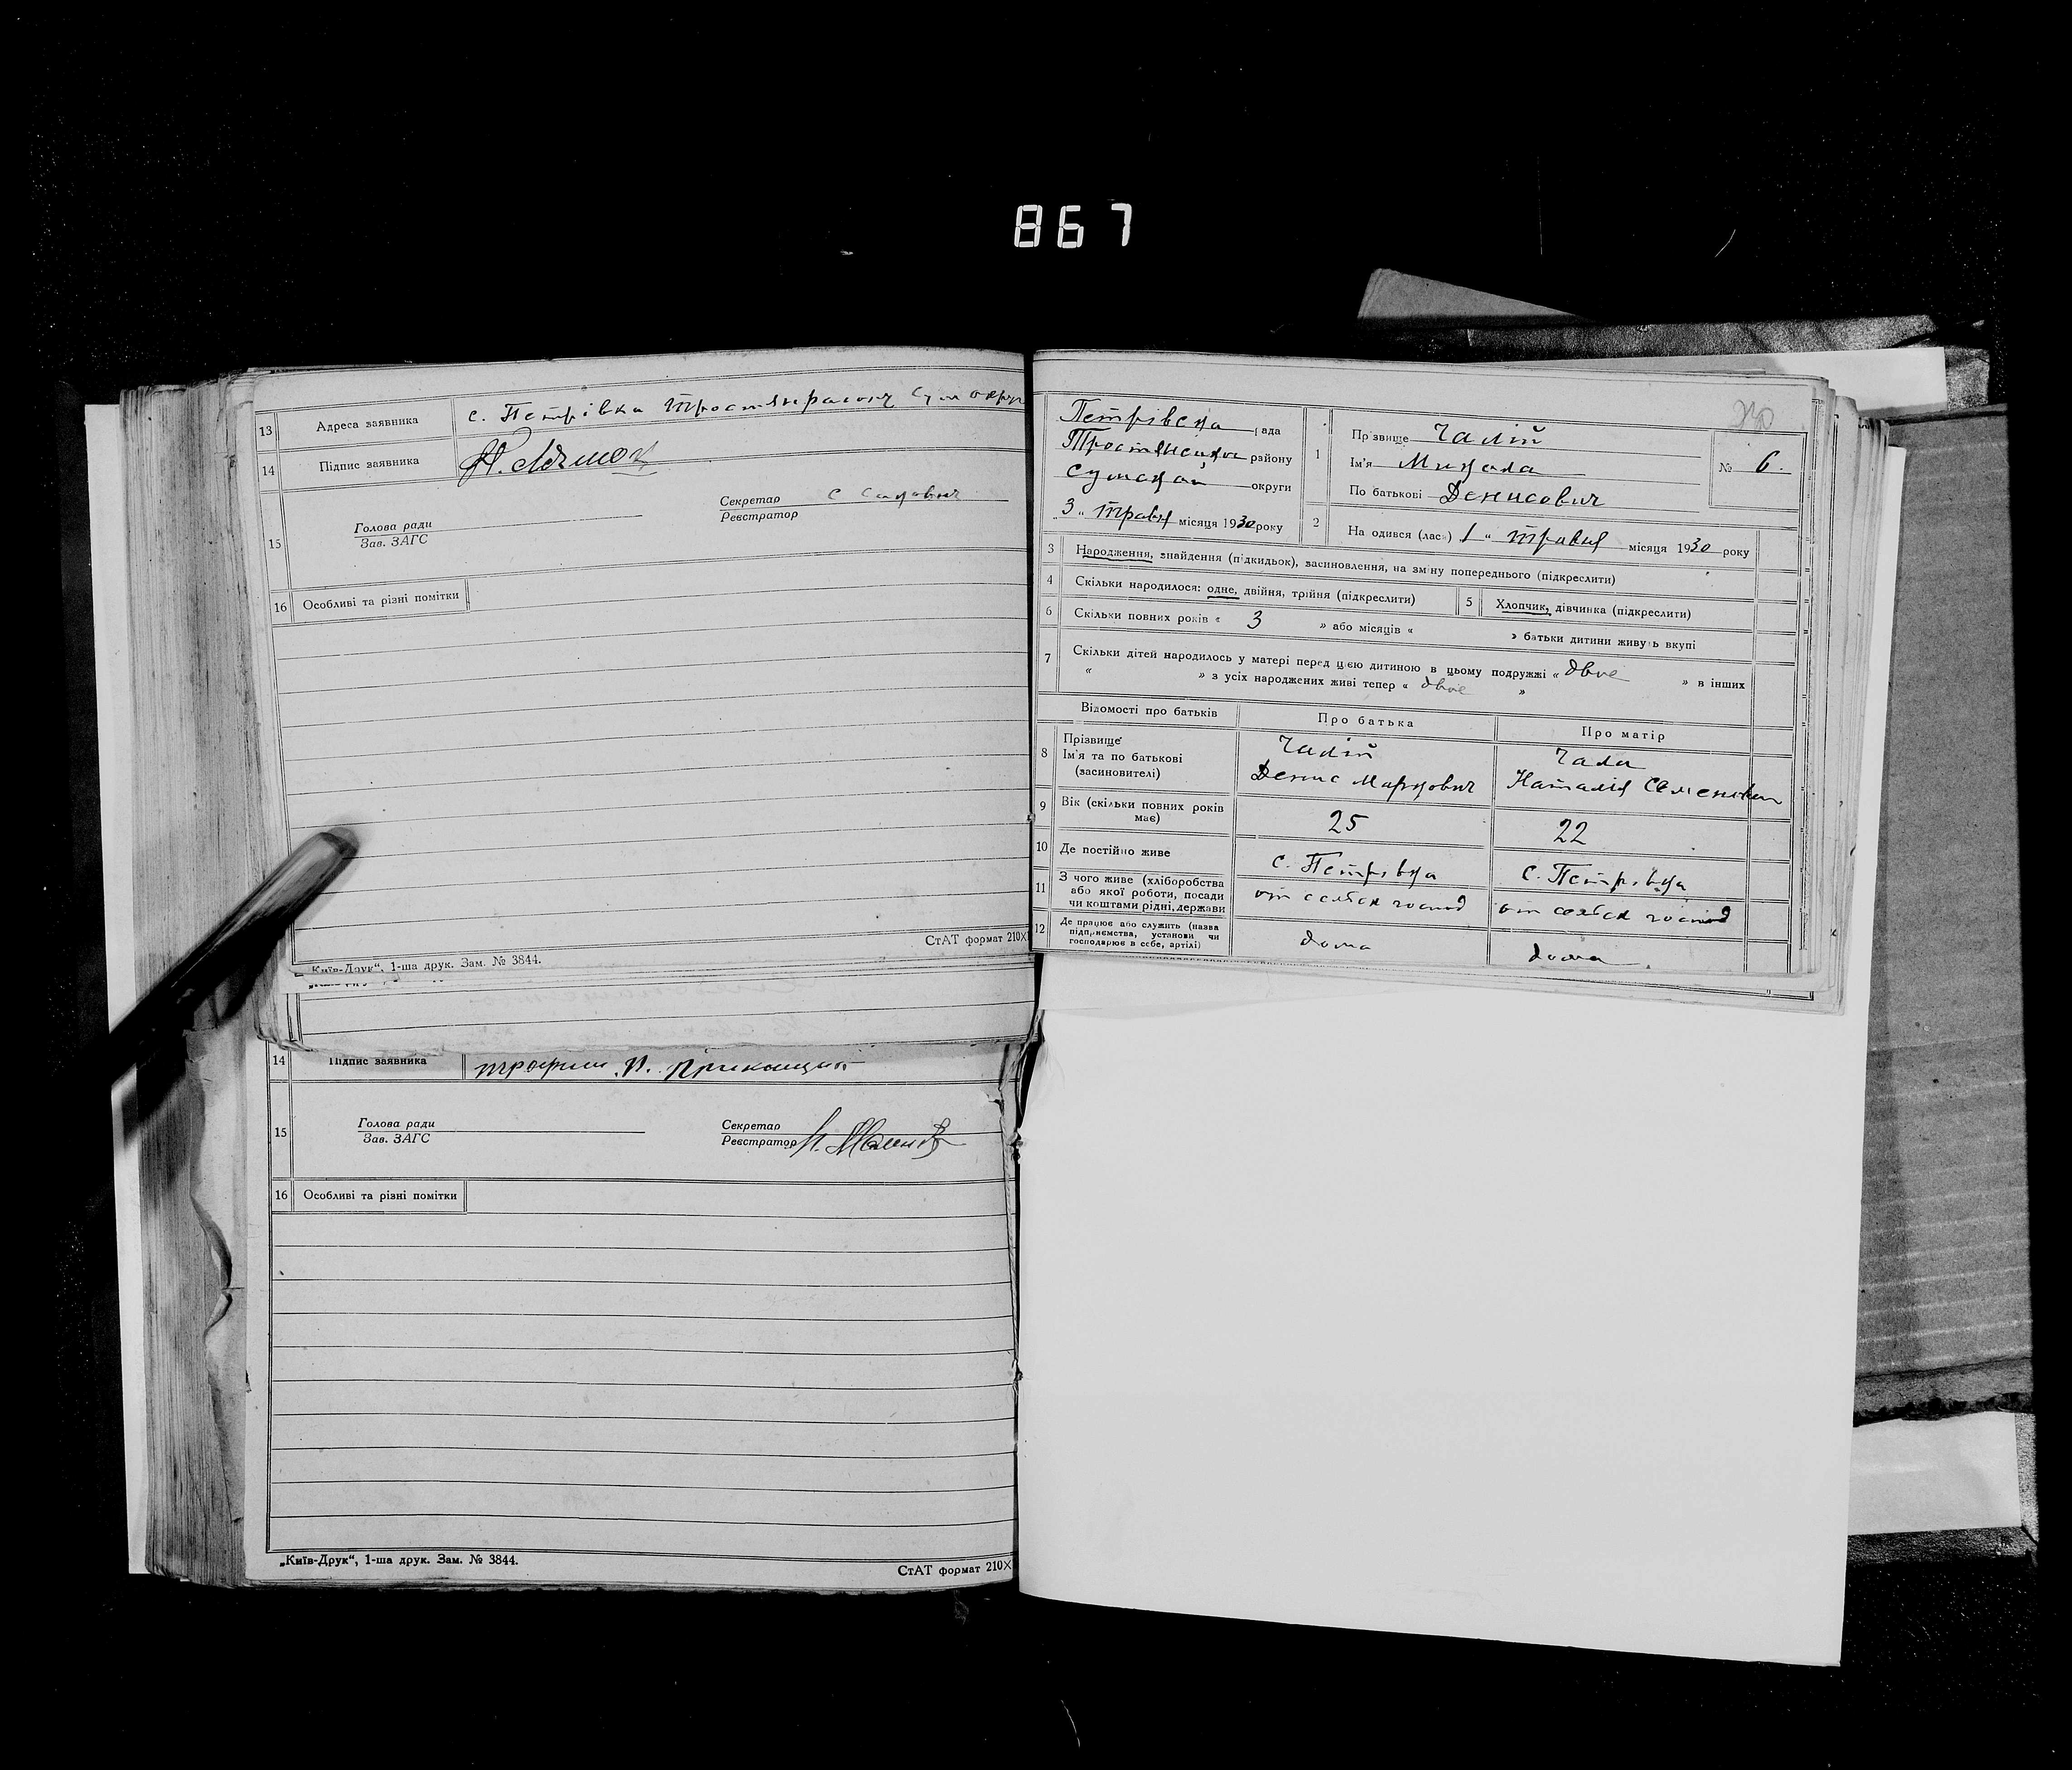 867
13 Адреса заявника с. Петрівка Тростян району Сум округ
14 Підпис заявника
15 Голова ради
Зав. ЗАГС
Секретар
Реєстратор
16 Особливі та різні помітки
СтАТ формат 210×
„Київ-Друк“, 1-ша друк. Зам. № 3844.
14 Підпис заявника
15 Голова ради
Зав. ЗАГС
Секретар
Реєстратор
16 Особливі та різні помітки
„Київ-Друк“, 1-ша друк. Зам. № 3844.
СтАТ формат 210×
Петрівска рада
Тростянецкої району
Сумскої округи
„3„ травня місяця 1930 року
1 Прізвище Чалій
Ім'я Микола
По батькові Денисович
№ 6.
2 На одився (лась) 1 „ травня місяця 1930 року
3 Народження, знайдення (підкидьок), засиновлення, на зміну попереднього (підкреслити)
4 Скільки народилося: одне, двійня, трійня (підкреслити)
5 Хлопчик, дівчинка (підкреслити)
6 Скільки повних років « 3 » або місяців « » батьки дитини живуть вкупі
7 Скільки дітей народилось у матері перед цією дитиною в цьому подружжі « двоє » в інших
« » з усіх народжених живі тепер « двоє »
Відомості про батьків Про батька Про матір
8 Прізвище Чалій Чала
Ім'я та по батькові Денис Маркович Наталія Семенівна
(засиновителі)
9 Вік (скільки повних років має) 25 22
10 Де постійно живе с. Петрівка с. Петрівка
11 З чого живе (хліборобства
або якої роботи, посади
чи коштами рідні, держави от сельск господ от сельск господ
12 Де працює або служить (назва
підприємства, установи чи
господарює в себе, артілі) дома дома